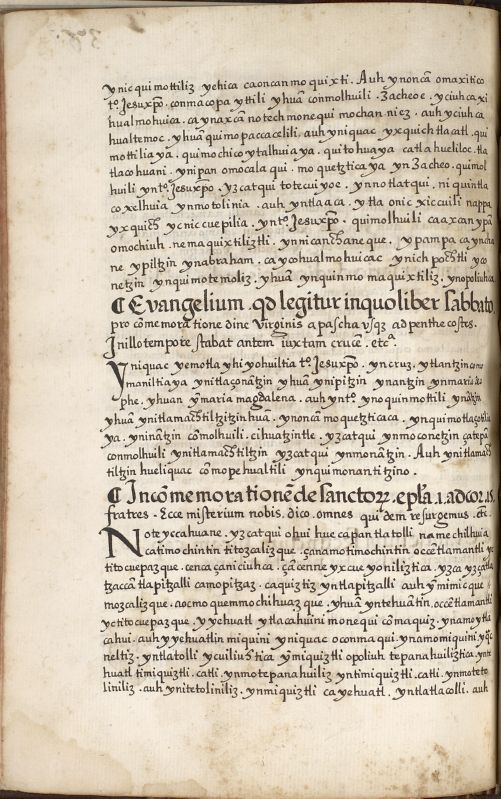 ynic qui mottiliz yehica caoncan mo quixti. Auh ynoncã omaxitico
t.º Jesuxp̃o. conmacopa yttili yhuã conmolhuili. Zacheo e. yciuhcaxi
hualmohuica. caynaxcã notech monequi mochan niez. auh yciuhca
hualtemoc. yhuã quimopaccacelili. auh yniquac yxquich tlacatl. qui
mottilia ya. quimochico ytalhuia ya. quitohuaya catla hueliloc. tla
tlacohuani. ynipan omocalaqui. moquetztica ya yn Zacheo. quimol
huili ynt.º Jesuxp̃o. yzcatqui totecuiyoe. ynnotlatqui. niquintla
coxelhuia ynmotolinia. auh yntlaaca. ytla onicxiccuili nappa
yxquich ycniccuepilia. ynt.º Jesuxp̃o. quimolhuili caaxcan ypã
omochiuh. nemaquixtiliztli. ynnicanchaneque. ypampa ca yneho
ne ypiltzin ynabraham. ca yohualmohuicac ynich pochtli yco
netzin ynquimotemoliz. yhuã ynquinmomaquixtiliz. ynopoliuhca
¶ Evangelium. qd legitur inquoliber sabbato
pro cõmemoratione dine Virginis a pascha vsqz ad penthecostes.
In illo tempore stabat antem iuxtam crucẽ. etcª.
Yniquac yemotlayhiyohuiltia t.º Jesuxp̃o. yncruz. ytlantzinco mo
maniltiaya ynitlaçonãtzin yhuã ynipitzin ynantzin ynmaria cleo
phe. yhuan ỹmaria magdalena. auh ynt.º ynoquinmottili ynãtzin
yhuã ynitlamachtiltzitzinhuã. ynoncãmoquetzticaca. ynquimotlaçotilia
ya. yninãtzin cõmolhuili. cihuatzintle. yzcatqui ynmoconetzin çatepã
conmolhuili ynitlamachtiltzin yzcatqui ynmonãtzin. Auh ynitlamach
tiltzin hueliquac cõmopehualtili ynquimonantitzino.
¶ Incõmemorationẽ de sanctorz. epl̃a .1. ad cor. 15.
fratres. Ecce misterium nobis. dico. omnes quidem resurgemus. etc̃.
Noteyccahuane. yzcatqui ohuihuecapantlatolli namechilhuia
catimochintin titozcalizque. çanamotimochintin occẽtlamantli yc
titocuepazque. cencaçaniciuhca. çãcenneyxcueyoniliztica. yzca yzçatla
tzaccãtlapitzalli camopitzaz. caquiztiz yntlapitzalli auh ỹmimicque
mozcalizque. aocmo quemmochihuazque. yhuã yntehuãtin. occẽtlamantli
yctitocuepazque. yyehuatl ytlacahuini monequi cõmaquiz. ynamo ytla
cahui. auh yyehuatlin miquini yniquac oconmaqui. ynamomiquini yq̃c
neltiz. yntlatolli ycuiliuhtica ỹmiquiztli opoliuh tepanahuiliztica. ynte
huatl timiquiztli. catli. ynmotepanahuiliz yntimiquiztli. catli. ynmoteto
liniliz. auh ynitetoliniliz. ynmiquiztli ca yehuatl. yntlatlacolli. auh